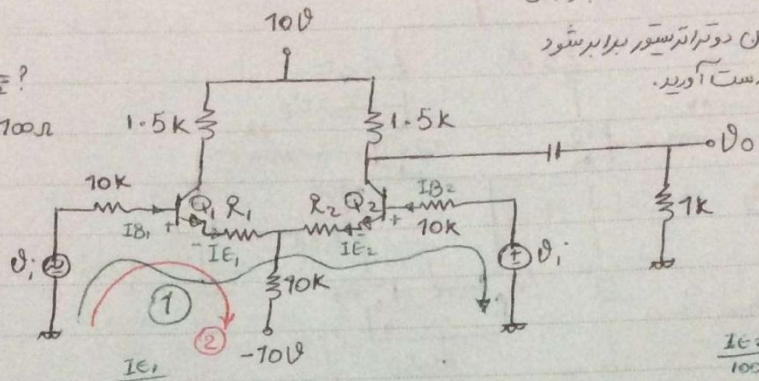 10v
ن دو ترانزیستور برابر شود
?
ست آورید.
100Ω
1.5k
1.5k
vo
10k
Q1
R1
R2
Q2
IB2
10k
1k
IB1
+
-
IE1
IE2
-
+
vi
vi
1
10k
2
-10v
IE1
IE2
100